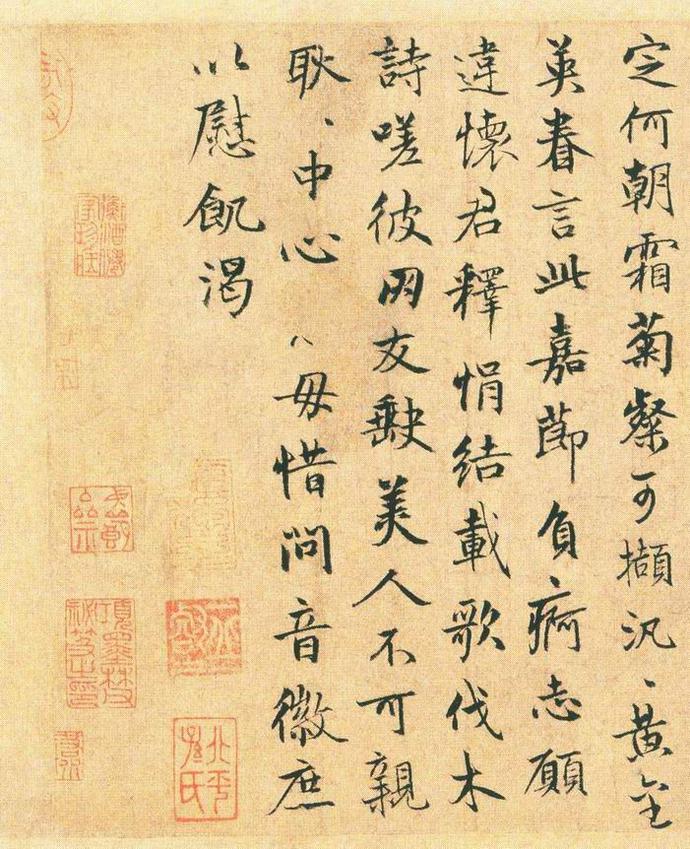 定何朝霜菊粲可擷汎、黃金
英眷言此嘉節負、痾志願
違懷君釋悁結載歌伐木
詩嗟彼朋友缺美人不可親
耿、中心毋惜問音徽庶
以慰飢渴
北平孫氏
項墨林祕笈之印